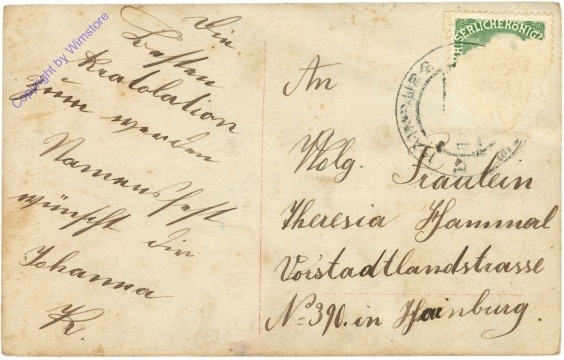 Die
Besten
Kratolation
Zum werden
Namensfest
wünscht dir
Johanna
K.
An
Wolg. Fräulein
Theresia Hammal
Vorstadtlandstrasse
No 390. in Hainburg.
KAISERLICHEKÖNIGL
HAINBURG
Copyright by Wimstore